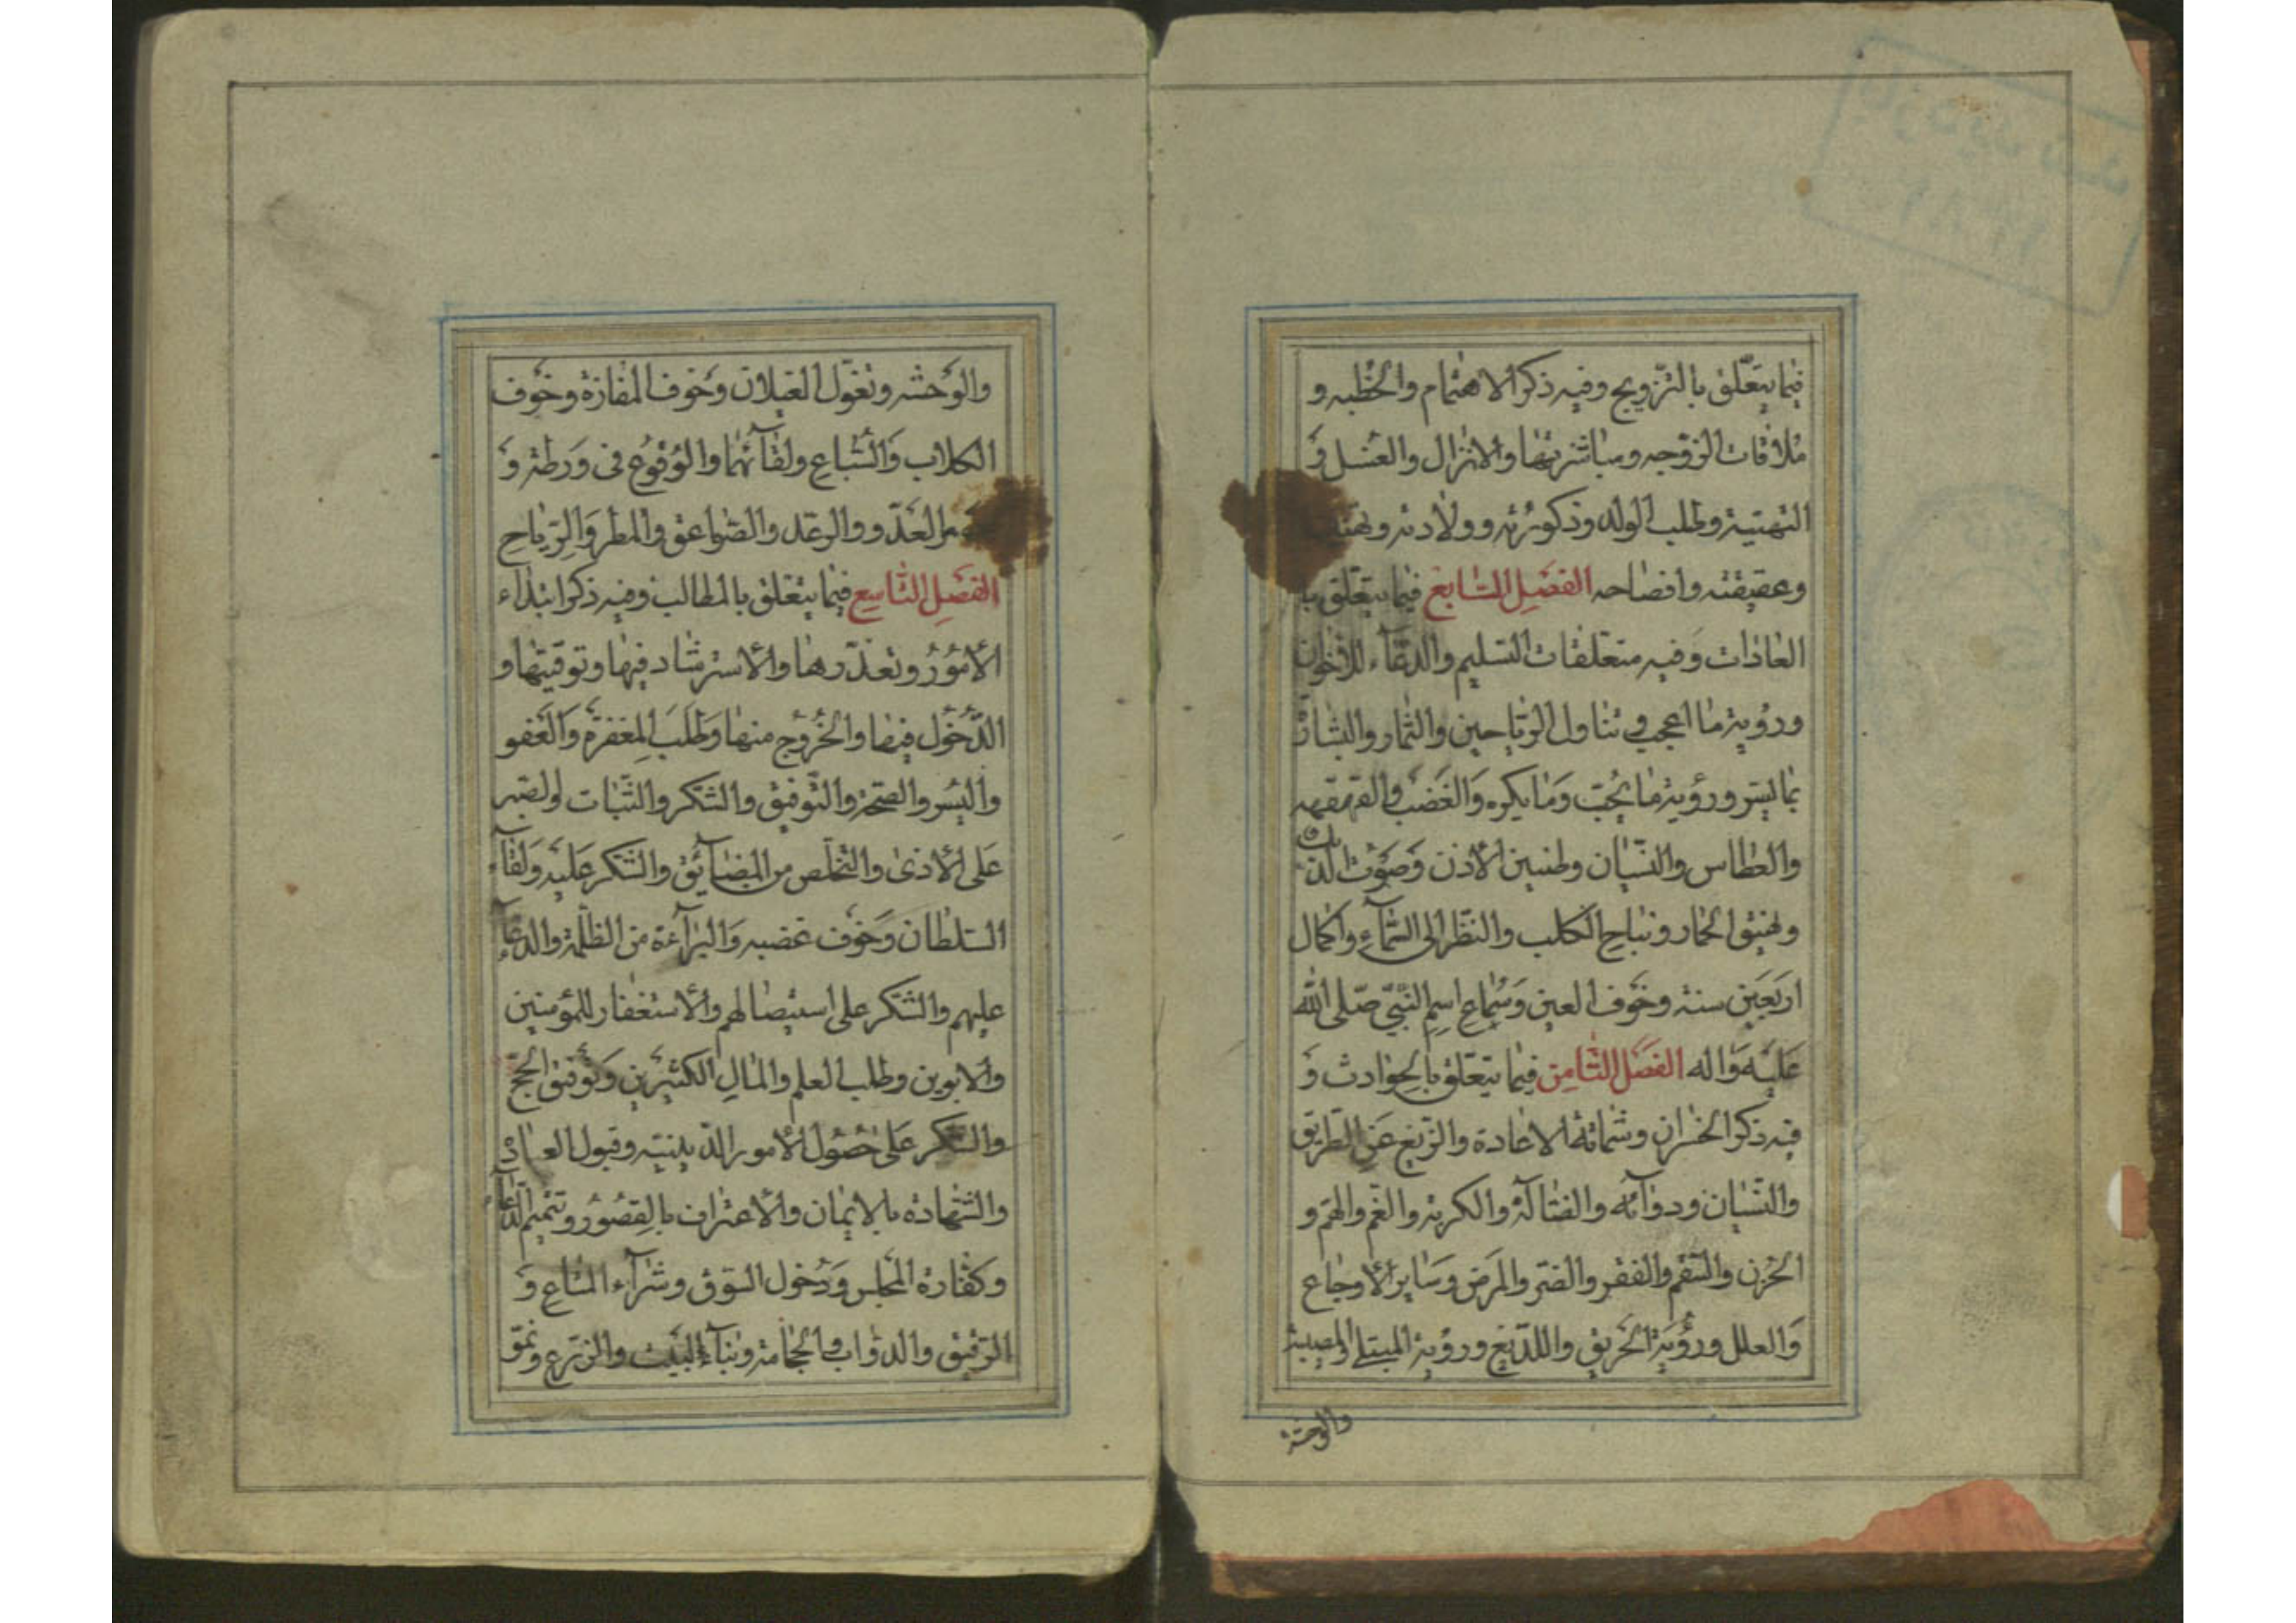 فيما يتعلّق بالتّزويج وفيه ذكر الاهتمام والخطبه و
ملاقات الزّوجه ومباشرتها والانزال والغسل وَ
التهنية وطلب الولد وذكورته وولادته
وعقيقته وافصاحه الفصل السّابع فيما يتعلّق با
العادات وَفيه متعلقات التسليم والدعآء للاخوان
ورؤية ما اعجب في تناول الرّياحين والثمار
بما يسر ورؤية ما يحبّ وَما يكره وَالغضب والقهقهه
والعطاس والنسيان وطنين الاذن وَصَوت الديك
ونهيق الحمار ونباح الكلب والنّظر الى السّمآء واكمال
اربَعين سنة وخَوف العين وَسماع اسم النّبيّ صّلى الله
عَليه وَاله الفصَل الثّامِن فيما يتعّلق بالحوادث وَ
فيه ذكر الخسران وشماتة الاعادة والزّيغ عَن الطّريق
والنّسيان ودوآئه والضّالّة والكربة والغّم والهّم و
الحُزن والسّقم والفقر والضّر والمرض وسَاير الاوجاع
وَالعلل ورؤيَة الحَريق واللّديغ ورؤية المبتلى والمصيبة
والوحشة
والوَحشه وتغوّل الغيلان وَخوف المفازة وخَوف
الكلاب وَالسّباع ولقآئهما والوُقوُع فى وَرطة وَ
العدّو والرعد والصّواعق والمطر وَالرّياح
الفصَل التّاسع فيما يتعلق بالمطالب وفيه ذكر ابتداء
الامُوُر وتعذّرها والاسترشاد فيها وتوقيتها و
الدُّخول فيها والخُروُج منها وَطلَب المغفرة وَالعَفو
واليُسر والصّحة والتّوفيق والشكر والثّبات والصّبر
عَلى الاذى والتخلّص من المضآئق والشكر عَليه وَلقآء
السّلطان وَخَوف غضبه وَالبرآءة من الظلمة والدعآء
عليهم والشكر على استيصالهم والاستغفار للمؤمنين
والابوين وطلب العلم والمال الكثيرين وَتَوفيق الحجّ
والشكر عَلى حُصُول الامور الدّينيّه وقبول العبادة
والشّهادة بالايمان والاعتراف بالقصُوُر وتتميم الدّعآء
وكفّارة المجلس وَدخول السّوق وشرآء المتاع وَ
الرّقيق والدوّاب والحجامة وبنآء البيت والزّرع ونموّ